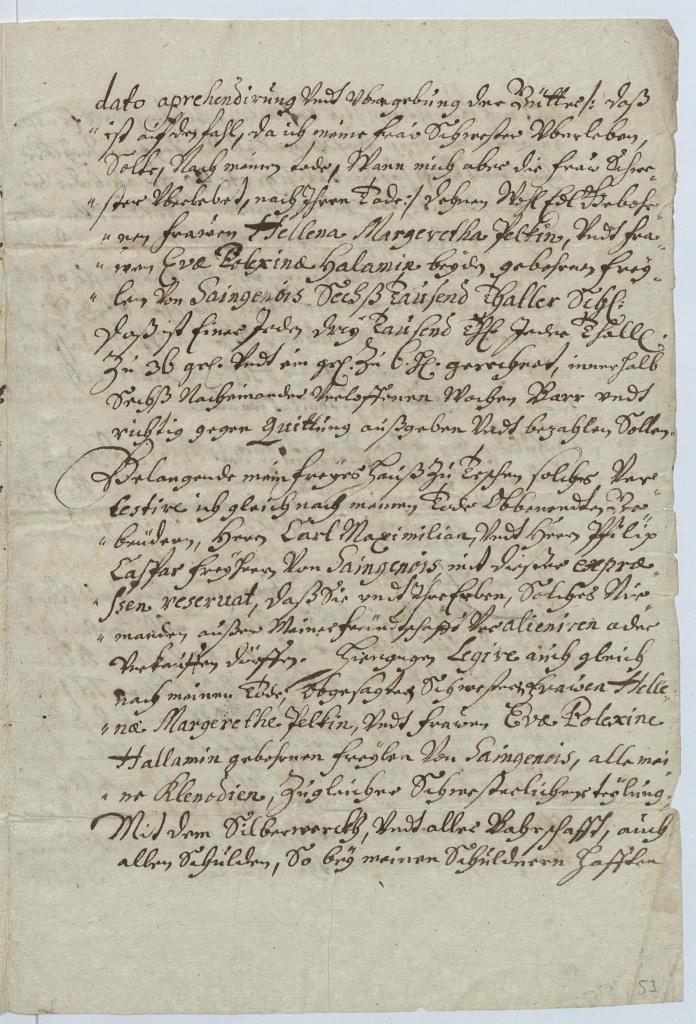 dato aprehendirung Vndt vbergebung der Gütter/: daß
ist auf den fahl, da ich meine fraw Schwester Vberleben,
Solte, Nach meinen tode, Wann mich aber die fraw Schwe-
ster Vberlebet, nach Ihren Tode:/ denen Wohl Edl Gebohr-
nen frawen Hellena Margeretha Peltkin, Vndt fra-
wen Evæ Polexinæ Halamin beyden gebohrnen frey-
len Von Saingenois Sechß Tausend Thaller Schl:
daß ist Einer Jeden drey Tausend Thl. Jeden Thaller
Zu 36 grl. Vndt ein grl. Zu 6 hl. gerechnet, innerhalb
Sechß Nacheinander Verloffenen Wochen Barr vndt
richtig gegen Quittung außgeben Vndt bezahlen Sollen.
Belangende mein freyes Hauß Zu Teschen solches Ver
testire ich gleich nach meinen Tode Obbenendten Ge-
brüdern, Herrn Carl Maximilian, Vndt Herrn Philip
Caspar freyherrn Von Saingenois mit dieser expræ-
ssen reservat, daß Sie vndt Ihre Erben, Solches Nie-
manden außer Meiner freündtschafft Veralieniren oder
Verkauffen dörffen. Hiengegen Legire auch gleich
nach meinen Tode obgesagten Schwestern frawen Helle-
næ Margerethe Peltkin, Vndt frawen Evæ Polexine
Hallamin gebohrnen freylen Von Saingenois, alle mei
ne Klenodien, Zu gleicher Schwesterlicher teylung,
Mit dem Silberwerckh, Vndt aller Bahrschafft, auch
allen Schulden, So bey meinen Schuldnern Hafften
53